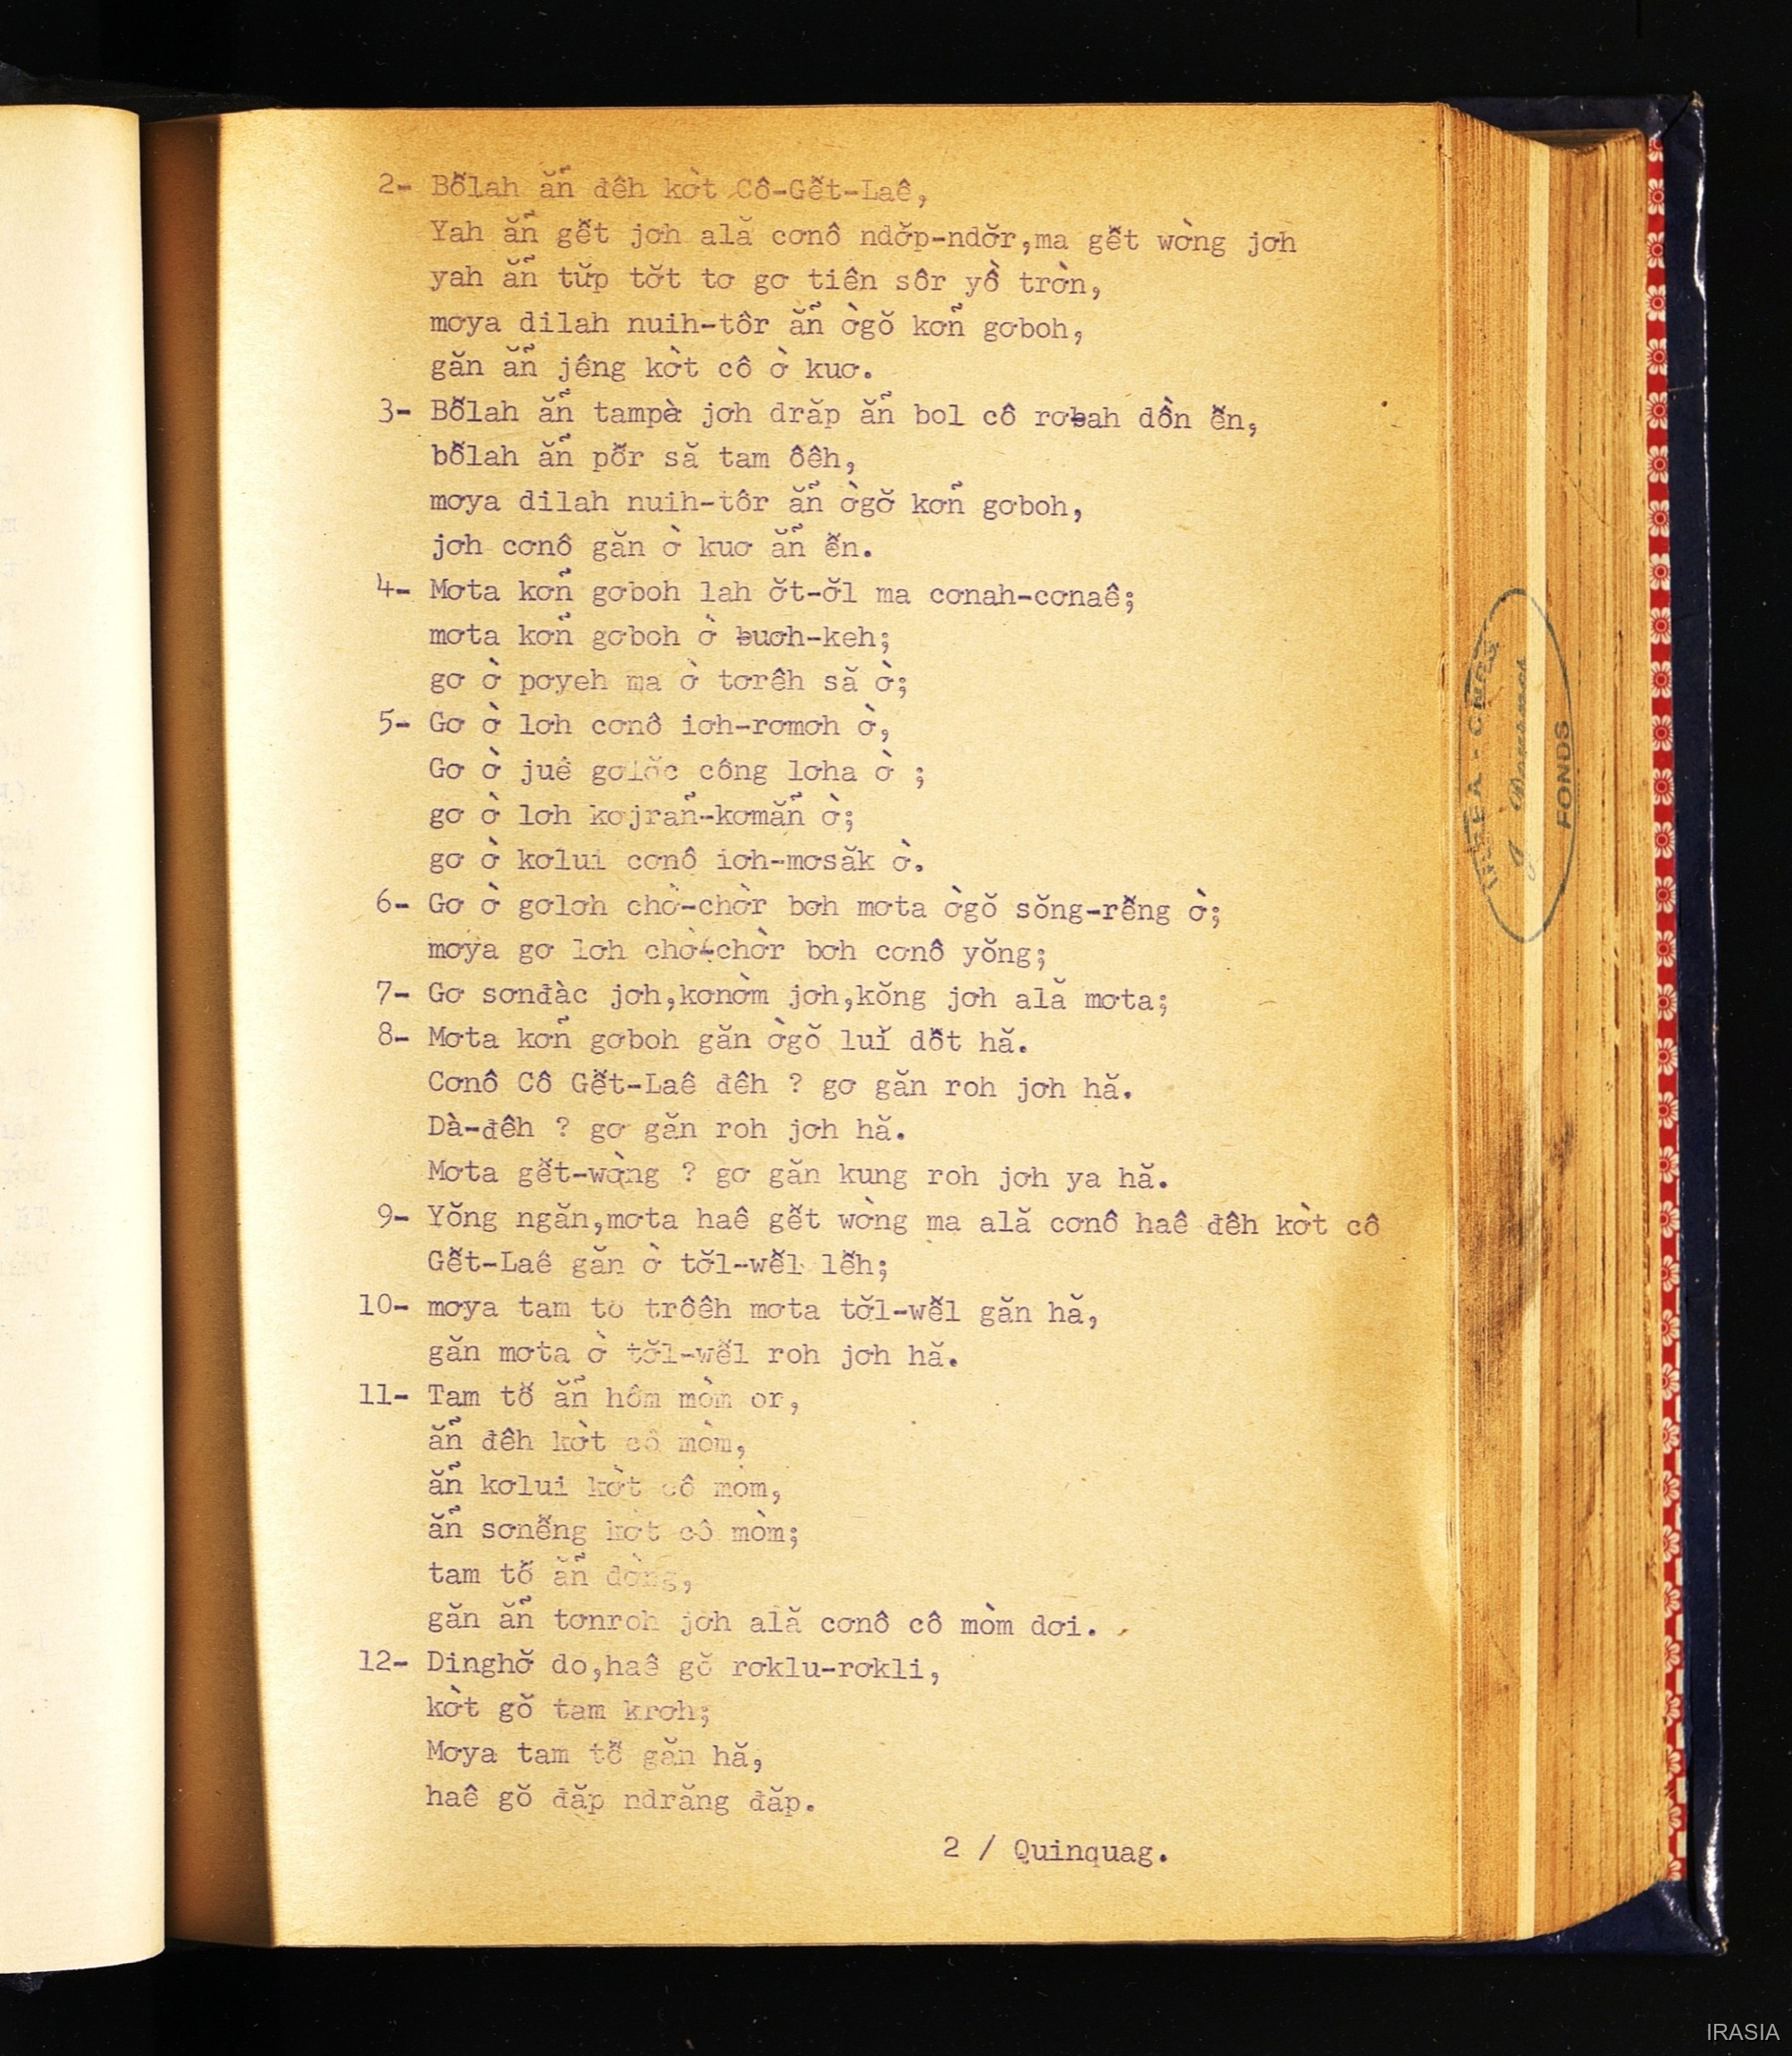 2- Bô̆lah ẵn đêh kờt Cô-Gê̆t-Laê,
Yah ẵn gê̆t jơh ală cơnô ndơ̆p-ndơ̆r,ma gê̆t wờng jơh
yah ẵn tŭp tơ̆t tơ gơ tiên sôr yồ trờn,
mơya dilah nuih-tôr ẵn ờgŏ kơñ gơboh,
găn ẵn jêng kờt cô ờ kuơ.
3- Bô̆lah ẵn tampà jơh drăp ẵn bol cô rơƀah dồn ê̆n,
bô̆lah ẵn pô̆r să tam ôêh,
mơya dilah nuih-tôr ẵn ờgơ̆ kơñ gơboh,
jơh cơnô găn ờ kuơ ẵn ê̆n.
4- Mơta kơñ gơboh lah ơ̆t-ơ̆l ma cơnah-cơnaê;
mơta kơñ gơboh ờ ƀuơh-keh;
gơ ờ pơyeh ma ờ tơrêh să ờ;
5- Gơ ờ lơh cơnô iơh-rơmơh ờ,
Gơ ờ juê gơlŏc công lơha ờ ;
gơ ờ lơh kơjrañ-kơmẵn ờ;
gơ ờ kơlui cơnô iơh-mơsăk ờ.
6- Gơ ờ gơlơh chờ-chờr bơh mơta ờgŏ sŏng-rê̆ng ờ;
mơya gơ lơh chờ-chờr bơh cơnô yŏng;
7- Gơ sơnđàc jơh,kơnờm jơh,kŏng jơh ală mơta;
8- Mơta kơñ gơboh găn ờgŏ luĭ dô̆t hă.
Cơnô Cô Gê̆t-Laê đêh ? gơ găn roh jơh hă.
Dà-đêh ? gơ găn roh jơh hă.
Mơta gê̆t-wờng ? gơ găn kung roh jơh ya hă.
9- Yŏng ngăn,mơta haê gê̆t wờng ma ală cơnô haê đêh kờt cô
Gê̆t-Laê găn ờ tơ̆l-wê̆l lê̆h;
10- mơya tam tô̆ trôêh mơta tơ̆l-wê̆l găn hă,
găn mơta ờ tơ̆l-wê̆l roh jơh hă.
11- Tam tô̆ ẵn hôm mòm or,
ẵn đêh kờt cô mòm,
ẵn kơlui kờt cô mòm,
ẵn sơnê̆ng kờt cô mòm;
tam tô̆ ẵn dờng,
găn ẵn tơnroh jơh ală cơnô cô mòm dơi.
12- Dinghơ̆ do,haê gŏ rơklu-rơkli,
kờt gŏ tam krơh;
Mơya tam tô̆ găn hă,
haê gŏ đăp ndrăng đăp.
2 / Quinquag.
FONDS
IRASIA